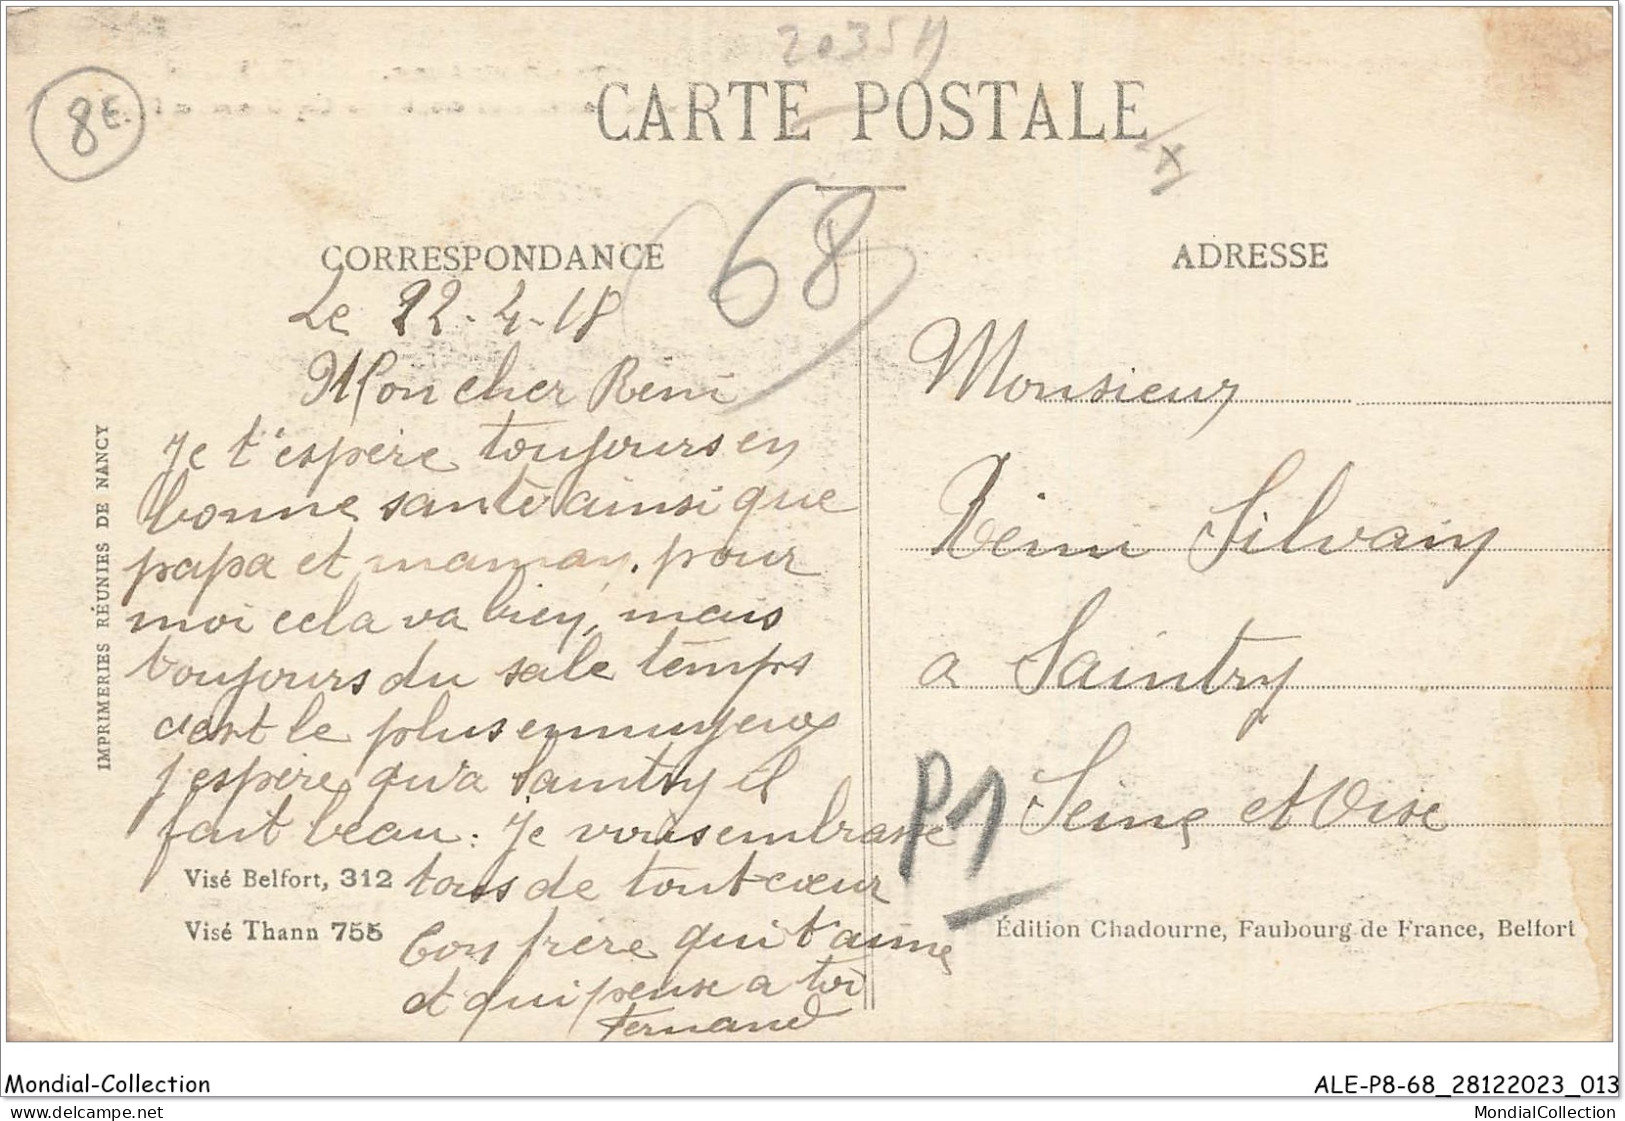 2035H
8€
CARTE POSTALE
68
CORRESPONDANCE
ADRESSE
Le 22-4-18
Mon cher Rémi
Je t'espère toujours en
bonne santé ainsi que
papa et maman, pour
moi cela va bien, mais
toujours du sale temps
cest le plus ennuyeux
j'espère qu'a Saintry il
fait beau: Je vous embrasse
tous de tout cœur
ton frère qui t'aime
et qui pense a toi
Fernand
Visé Belfort, 312
Visé Thann 755
IMPRIMERIES RÉUNIES DE NANCY
Monsieur
Rémi Silvain
a Saintry
Seine et Oise
P1
Édition Chadourne, Faubourg de France, Belfort
Mondial-Collection
ALE-P8-68_28122023_013
delcampe.net
MondialCollection